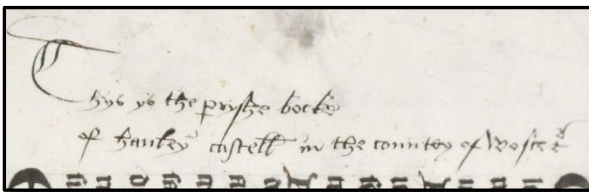 Thys ys the parysshe bocke
of hanley castell in the countey of Worceter